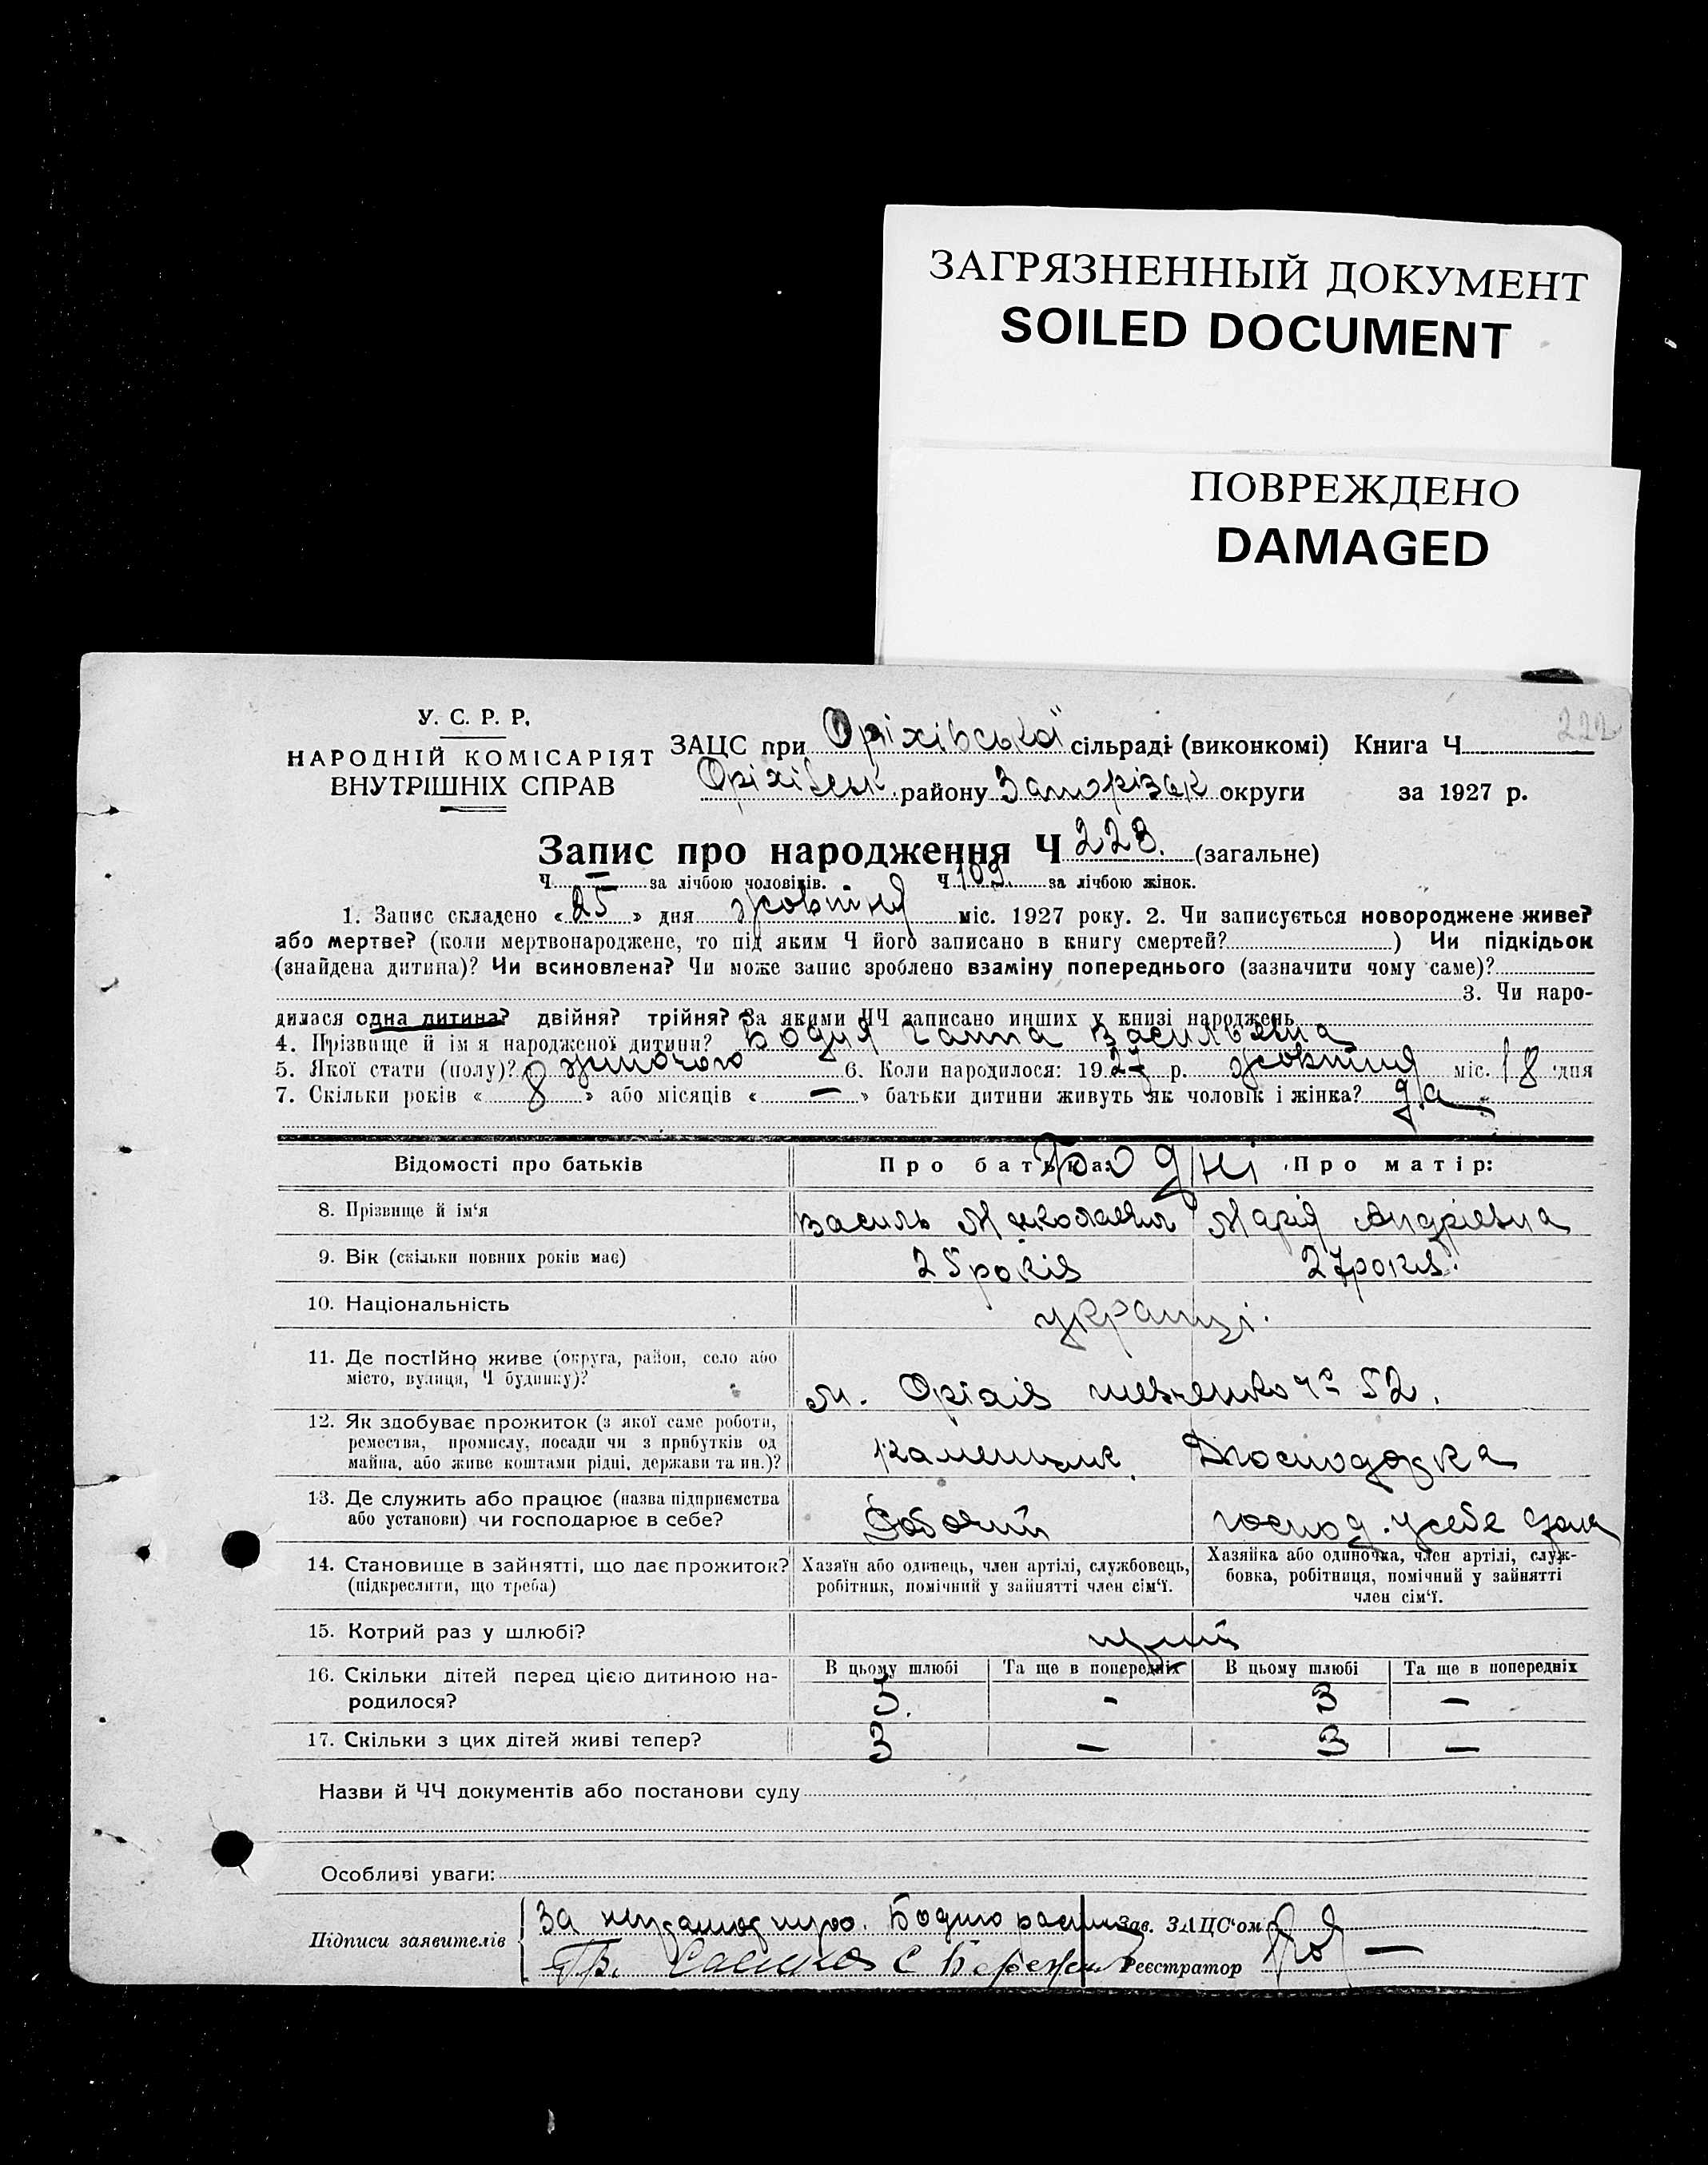 ЗАГРЯЗНЕННЫЙ ДОКУМЕНТ
SOILED DOCUMENT
ПОВРЕЖДЕНО
DAMAGED
222
У. С. Р. Р.
НАРОДНІЙ КОМІСАРІЯТ
ВНУТРІШНІХ СПРАВ
ЗАЦС при Оріхівської сільраді (виконкомі) Книга Ч
Оріхівськ. району Запоріжк округи за 1927 р.
Запис про народження Ч 223. (загальне)
Ч — за лічбою чоловіків. Ч 109 за лічбою жінок.
1. Запис складено « 25 » дня жовтня міс. 1927 року. 2. Чи записується новороджене живе?
або мертве? (коли мертвонароджене, то під яким Ч його записано в книгу смертей? ) Чи підкідьок
(знайдена дитина)? Чи всиновлена? Чи може запис зроблено взаміну попереднього (зазначити чому саме)?
3. Чи наро-
дилася одна дитина? двійня? трійня? За якими ЧЧ записано инших у книзі народжень
4. Прізвище й ім'я народженої дитини? Бодня Ганна Васильевна
5. Якої стати (полу)? жіночого 6. Коли народилося: 1927 р. жовтня міс. 18 дня
7. Скільки років « 8 » або місяців « — » батьки дитини живуть як чоловік і жінка? да
Відомості про батьків Про батька: Про матір:
Бодні
8. Прізвище й ім'я Василь Миколаевич Марія Андріевна
9. Вік (скільки повних років має) 25 років 27 років.
10. Національність українці.
11. Де постійно живе (округа, район, село або
місто, вулиця, Ч будинку)? м. Оріхів Шевченко 52.
12. Як здобуває прожиток (з якої саме роботи,
ремества, промислу, посади чи з прибутків од
майна, або живе коштами рідні, держави та ин.)? каменщик. Господарка
13. Де служить або працює (назва підприємства
або установи) чи господарює в себе? робочий господ. у себе дома
14. Становище в зайнятті, що дає прожиток?
(підкреслити, що треба)
Хазяїн або одинець, член артілі, службовець,
робітник, помічний у зайнятті член сім'ї.
Хазяйка або одиночка, член артілі, служ-
бовка, робітниця, помічний у зайнятті
член сім'ї.
15. Котрий раз у шлюбі?
В цьому шлюбі Та ще в попередніх В цьому шлюбі Та ще в попередніх
16. Скільки дітей перед цією дитиною на-
родилося? 3. - 3 —
17. Скільки з цих дітей живі тепер? 3 — 3 —
Назви й ЧЧ документів або постанови суду
Особливі уваги:
Підписи заявителів
За Бодню
Гр.
Зав. ЗАЦС'ом
Реєстратор